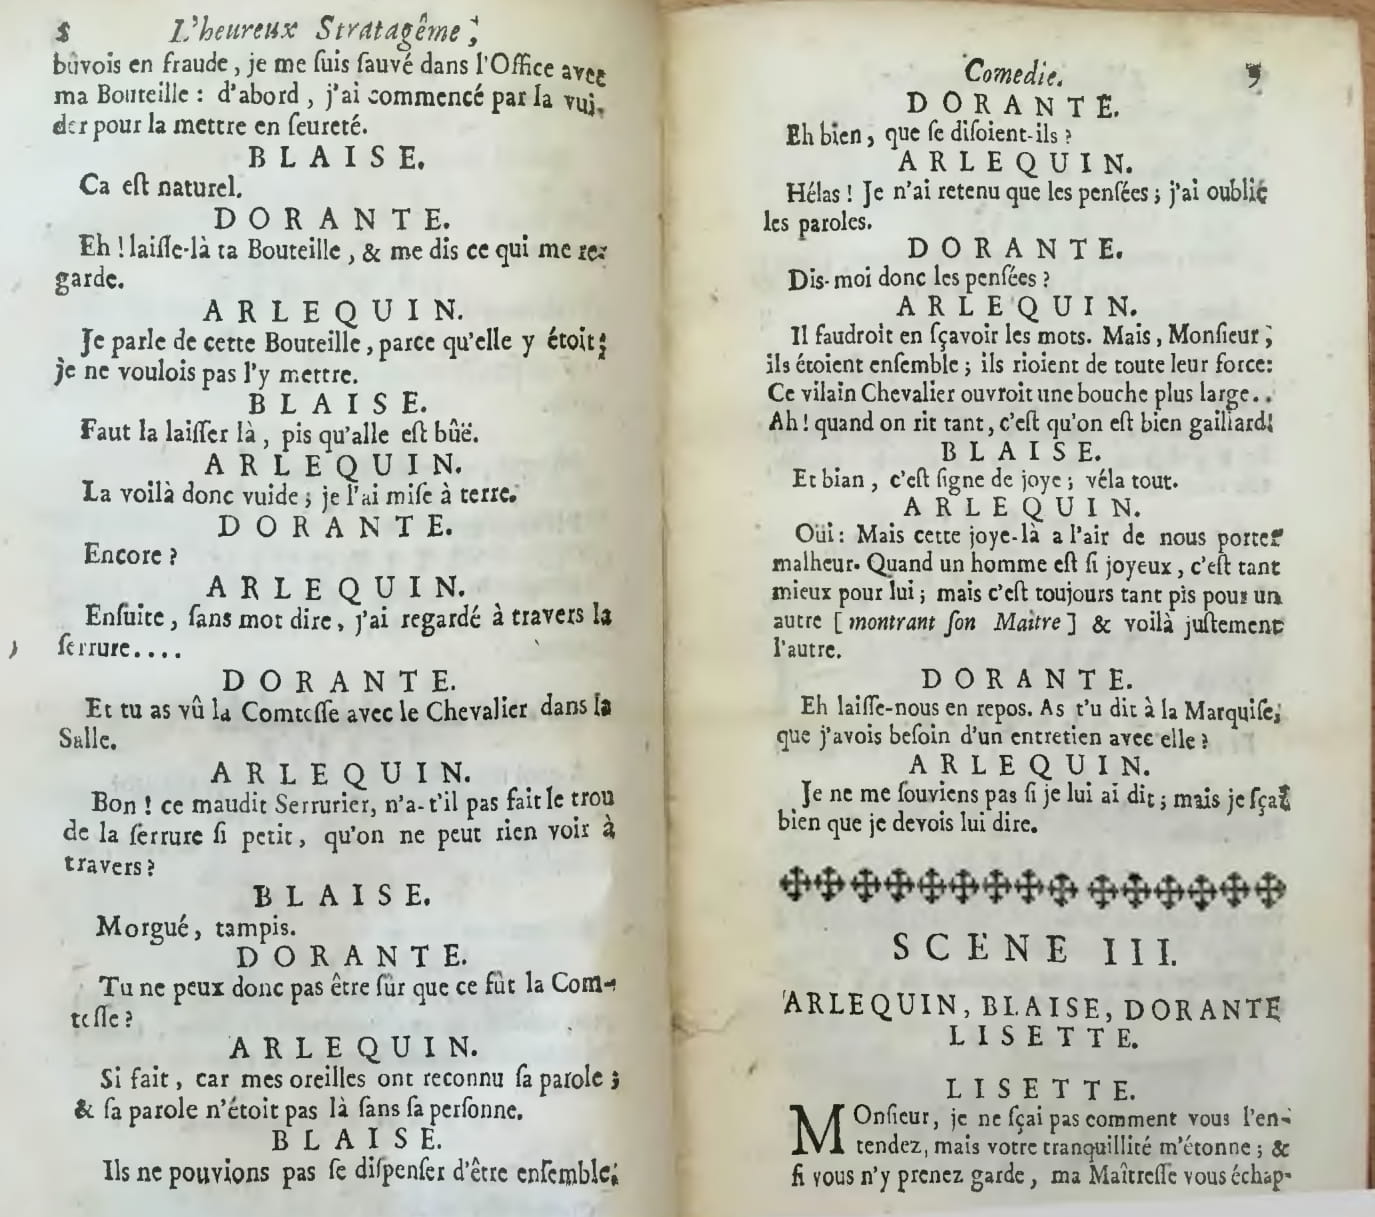 8 L'heureux Stratagême,
bûvois en fraude, je me ſuis ſauvé dans l'Office avec
ma Bouteille : d'abord, j'ai commencé par la vui-
der pour la mettre en ſeureté.
BLAISE.
Ca eſt naturel.
DORANTE.
Eh ! laiſſe-là ta Bouteille, & me dis ce qui me re-
garde.
ARLEQUIN.
Je parle de cette Bouteille, parce qu'elle y étoit ;
je ne voulois pas l'y mettre.
BLAISE.
Faut la laiſſer là, pis qu'alle eſt bûë.
ARLEQUIN.
La voilà donc vuide ; je l'ai miſe à terre.
DORANTE.
Encore ?
ARLEQUIN.
Enſuite, ſans mot dire, j'ai regardé à travers la
ſerrure....
DORANTE.
Et tu as vû la Comteſſe avec le Chevalier dans la
Salle.
ARLEQUIN.
Bon ! ce maudit Serrurier, n'a-t'il pas fait le trou
de la ſerrure ſi petit, qu'on ne peut rien voir à
travers ?
BLAISE.
Morgué, tampis.
DORANTE.
Tu ne peux donc pas être ſûr que ce fût la Com-
teſſe ?
ARLEQUIN.
Si fait, car mes oreilles ont reconnu ſa parole ;
& ſa parole n'étoit pas là ſans ſa perſonne.
BLAISE.
Ils ne pouvions pas ſe diſpenſer d'être enſemble.
Comedie. 9
DORANTE.
Eh bien, que ſe diſoient-ils ?
ARLEQUIN.
Hélas ! Je n'ai retenu que les penſées ; j'ai oublié
les paroles.
DORANTE.
Dis-moi donc les penſées ?
ARLEQUIN.
Il faudroit en ſçavoir les mots. Mais, Monſieur,
ils étoient enſemble ; ils rioient de toute leur force :
Ce vilain Chevalier ouvroit une bouche plus large..
Ah ! quand on rit tant, c'eſt qu'on eſt bien gaillard !
BLAISE.
Et bian, c'eſt ſigne de joye ; véla tout.
ARLEQUIN.
Oüi : Mais cette joye-là a l'air de nous porter
malheur. Quand un homme eſt ſi joyeux, c'eſt tant
mieux pour lui ; mais c'eſt toujours tant pis pour un
autre [ montrant ſon Maître ] & voilà juſtement
l'autre.
DORANTE.
Eh laiſſe-nous en repos. As t'u dit à la Marquiſe,
que j'avois beſoin d'un entretien avec elle ?
ARLEQUIN.
Je ne me ſouviens pas ſi je lui ai dit ; mais je ſçai
bien que je devois lui dire.
SCENE III.
ARLEQUIN, BLAISE, DORANTE
LISETTE.
LISETTE.
MOnſieur, je ne ſçai pas comment vous l'en-
tendez, mais votre tranquillité m'étonne ; &
ſi vous n'y prenez garde, ma Maîtreſſe vous échap-